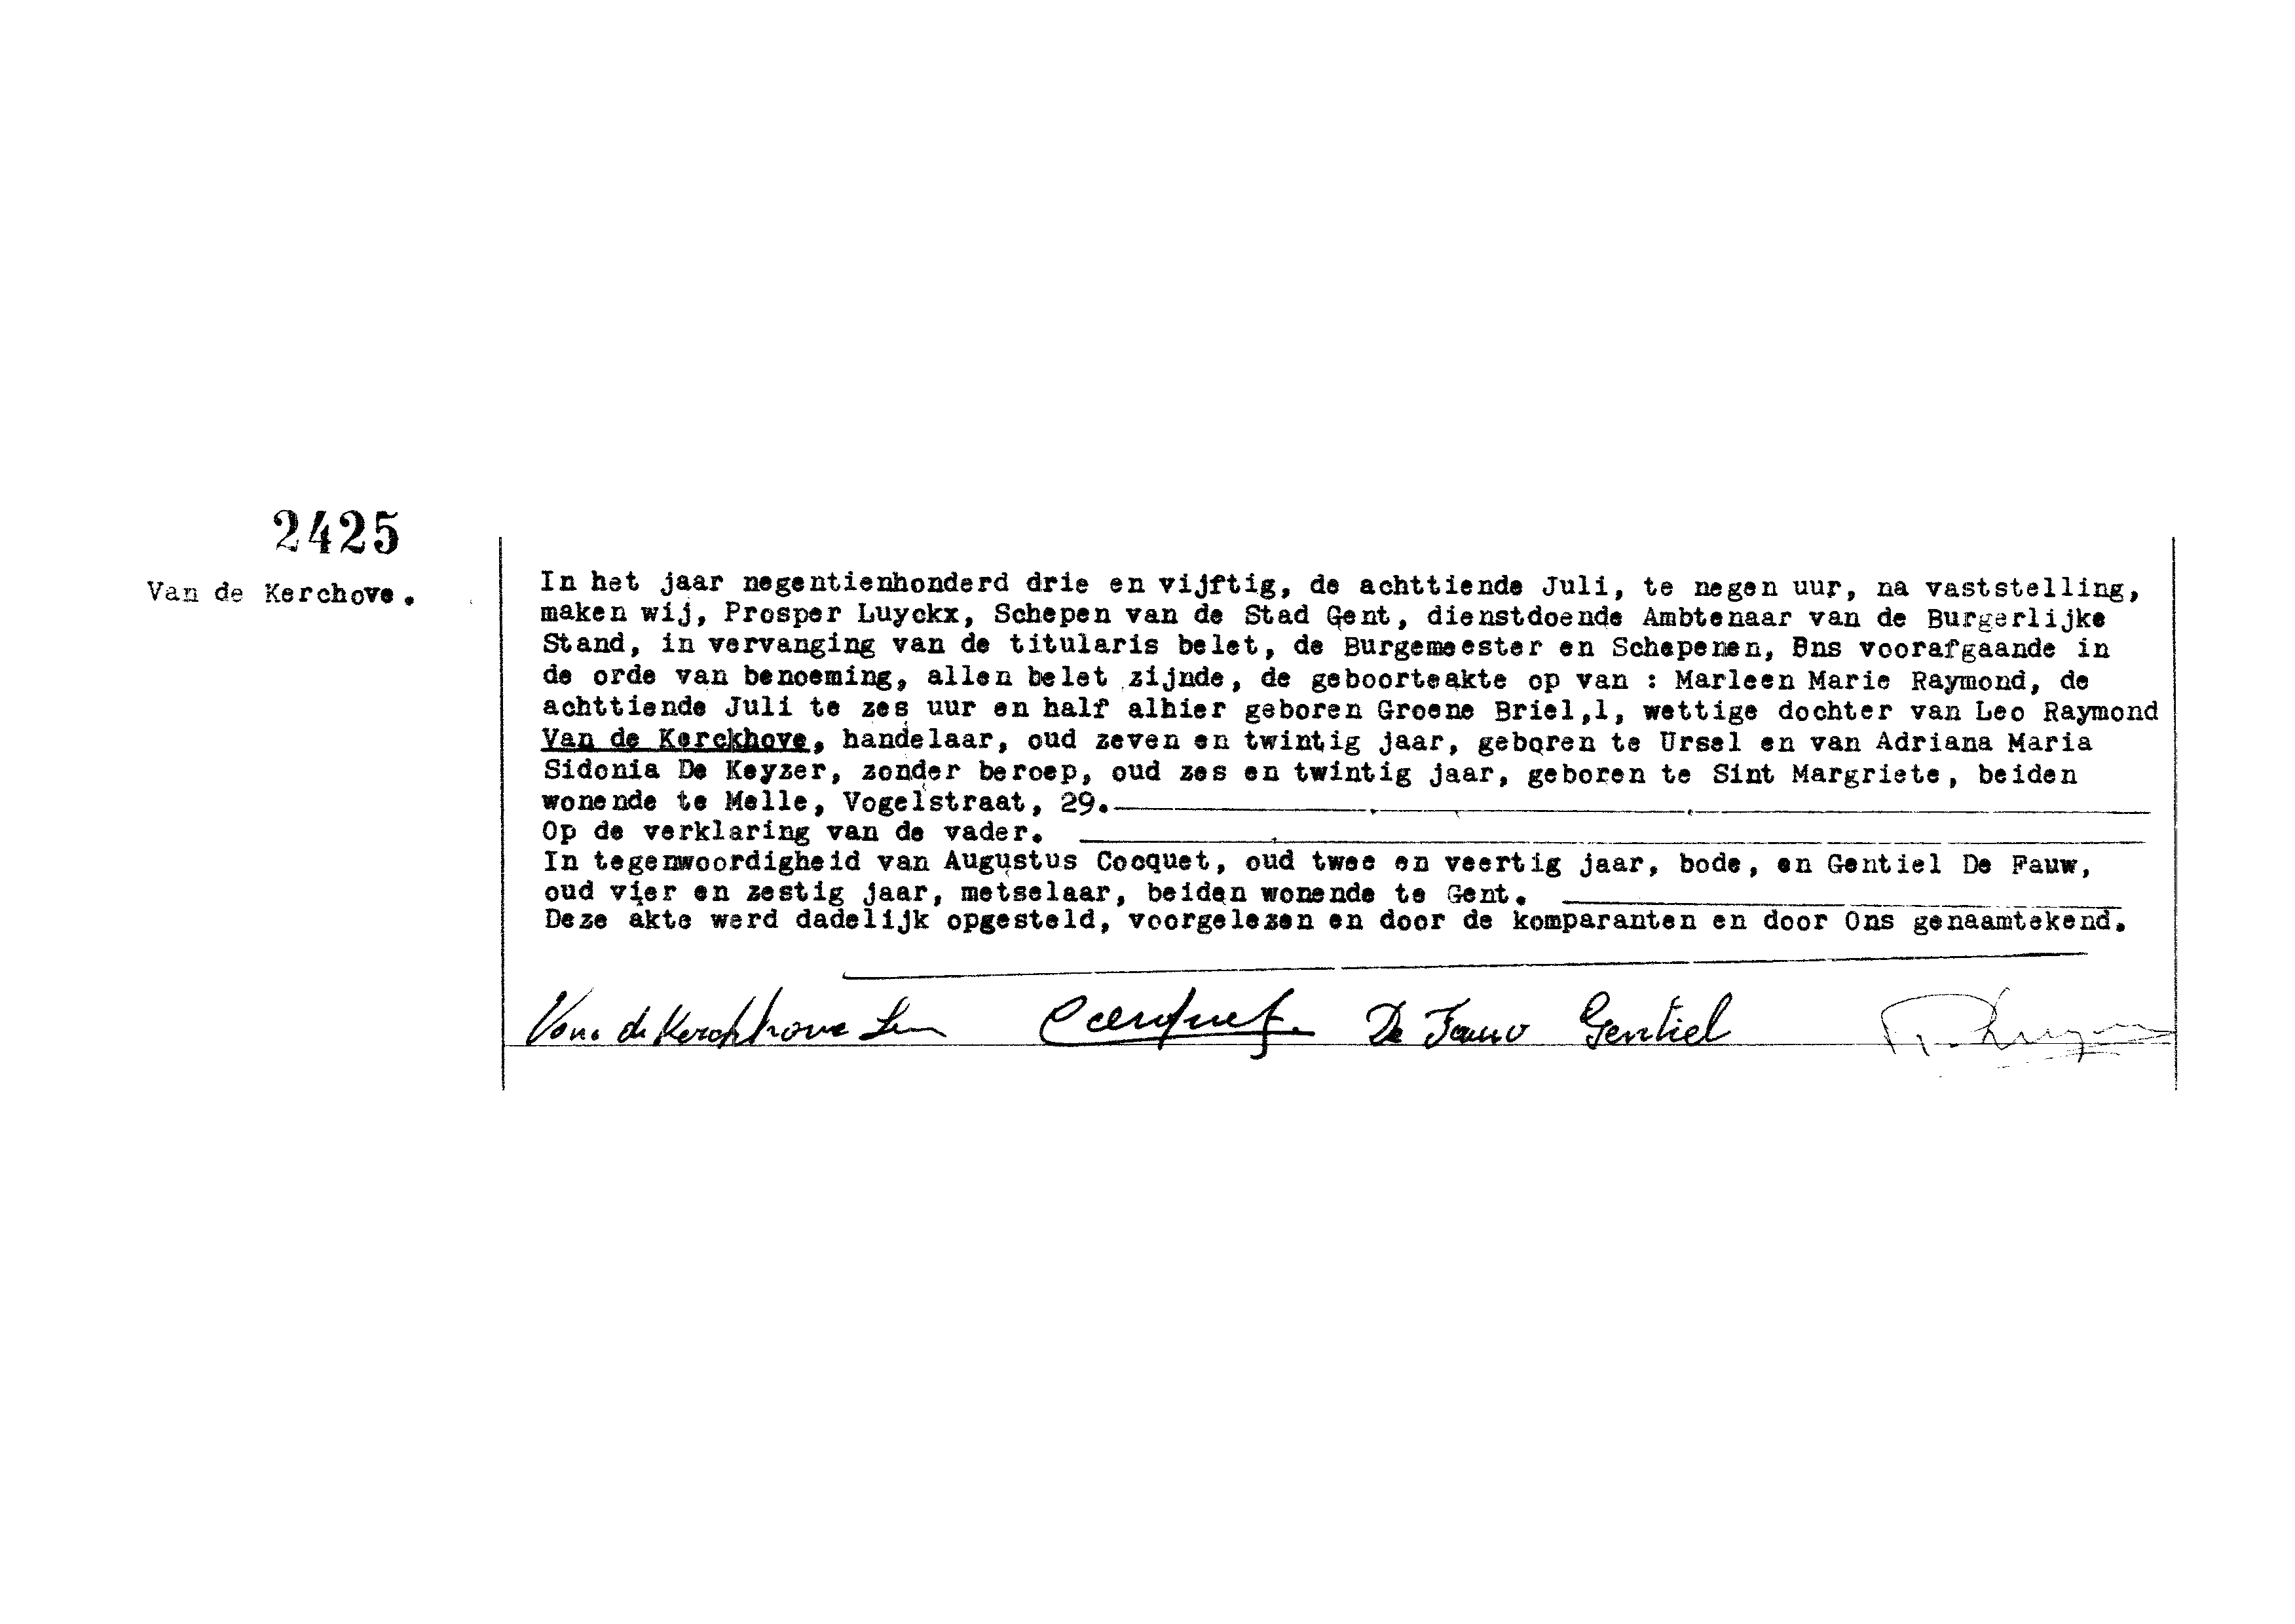 2425
Van de Kerchove.
In het jaar negentienhonderd drie en vijftig, de achttiende Juli, te negen uur, na vaststelling,
maken wij, Prosper Luyckx, Schepen van de Stad Gent, dienstdoende Ambtenaar van de Burgerlijke
Stand, in vervanging van de titularis belet, de Burgemeester en Schepenen, Ons voorafgaande in
de orde van benoeming, allen belet zijnde, de geboorteakte op van : Marleen Marie Raymond, de
achttiende Juli te zes uur en half alhier geboren Groene Briel,1, wettige dochter van Leo Raymond
Van de Kerckhove, handelaar, oud zeven en twintig jaar, geboren te Ursel en van Adriana Maria
Sidonia De Keyzer, zonder beroep, oud zes en twintig jaar, geboren te Sint Margriete, beiden
wonende te Melle, Vogelstraat, 29.
Op de verklaring van de vader.
In tegenwoordigheid van Augustus Cocquet, oud twee en veertig jaar, bode, en Gentiel De Fauw,
oud vier en zestig jaar, metselaar, beiden wonende te Gent.
Deze akte werd dadelijk opgesteld, voorgelezen en door de komparanten en door Ons genaamtekend.
Van de Kerckhove Leo De Fauw Gentiel